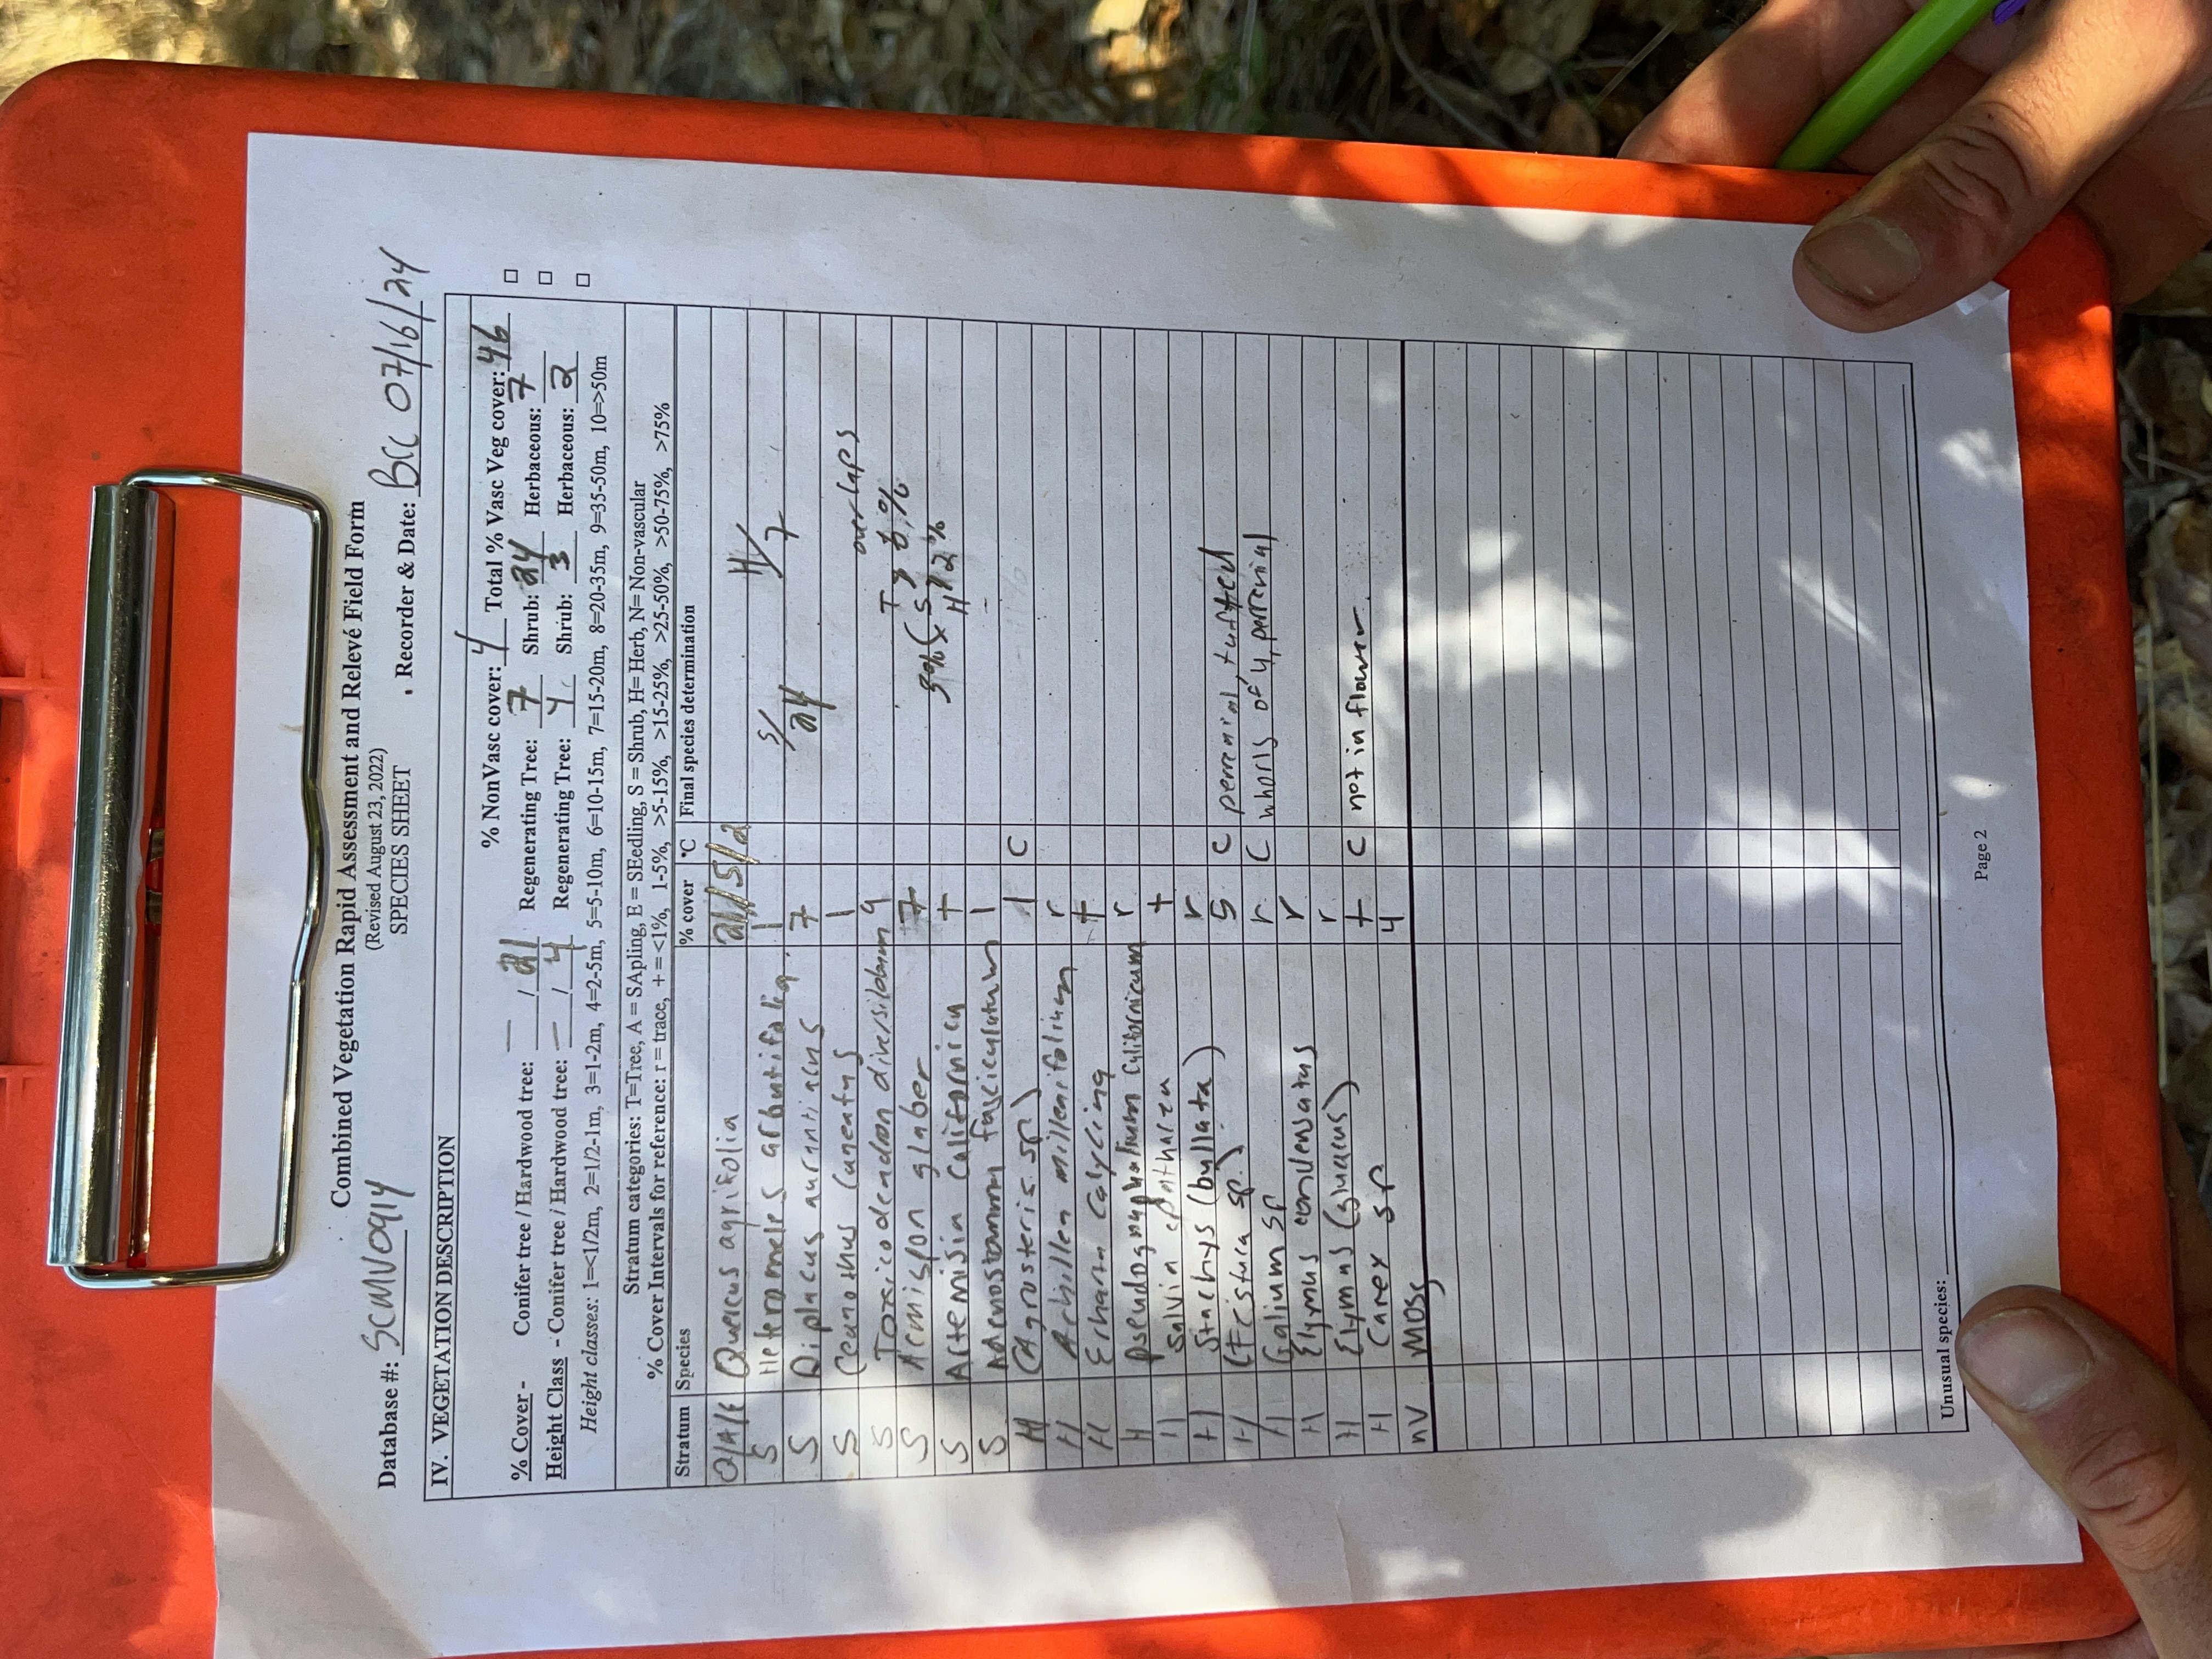 Combined Vegetation Rapid Assessment and Relevé Field Form
(Revised August 23, 2022)
SPECIES SHEET
Database #: SCMV0914 Recorder & Date: BCC 07/16/24
IV. VEGETATION DESCRIPTION
% NonVasc cover: 4 Total % Vasc Veg cover: 46
% Cover - Conifer tree / Hardwood tree: — / 21 Regenerating Tree: 7 Shrub: 24 Herbaceous: 7
Height Class - Conifer tree / Hardwood tree: — / 4 Regenerating Tree: 4 Shrub: 3 Herbaceous: 2
Height classes: 1=<1/2m, 2=1/2-1m, 3=1-2m, 4=2-5m, 5=5-10m, 6=10-15m, 7=15-20m, 8=20-35m, 9=35-50m, 10=>50m
Stratum categories: T=Tree, A = SApling, E = SEedling, S = Shrub, H= Herb, N= Non-vascular
% Cover Intervals for reference: r = trace, + = <1%, 1-5%, >5-15%, >15-25%, >25-50%, >50-75%, >75%
Stratum Species % cover C Final species determination
/A/E Quercus agrifolia 21/5/2
S Heteromeles arbutifolia 1 H/
S Diplacus aurantiacus 7 S/ 7
S Ceanothus cuneatus 1 24
S Toxicodendron diversilobum 9 overlaps
S Acmispon glaber 7 T > %
S Artemisia californica + 3% S H > 2%
S Adenostamma fasciculatum 1
H (Agrosteris sp) 1 C
H Achillea millearifolium r
H Erharta calycina +
H Pseudognaphalium californicum r
H Salvia spathacea +
H Stachys (bullata) r
H (Festuca sp.) 5 C perrenial, tufted
H Galium sp r C whorls of 4, perrenial
H Elymus condensatus r
H Elymus (glaucus) r
H Carex sp + C not in flower
NV Moss 4
Unusual species:
Page 2